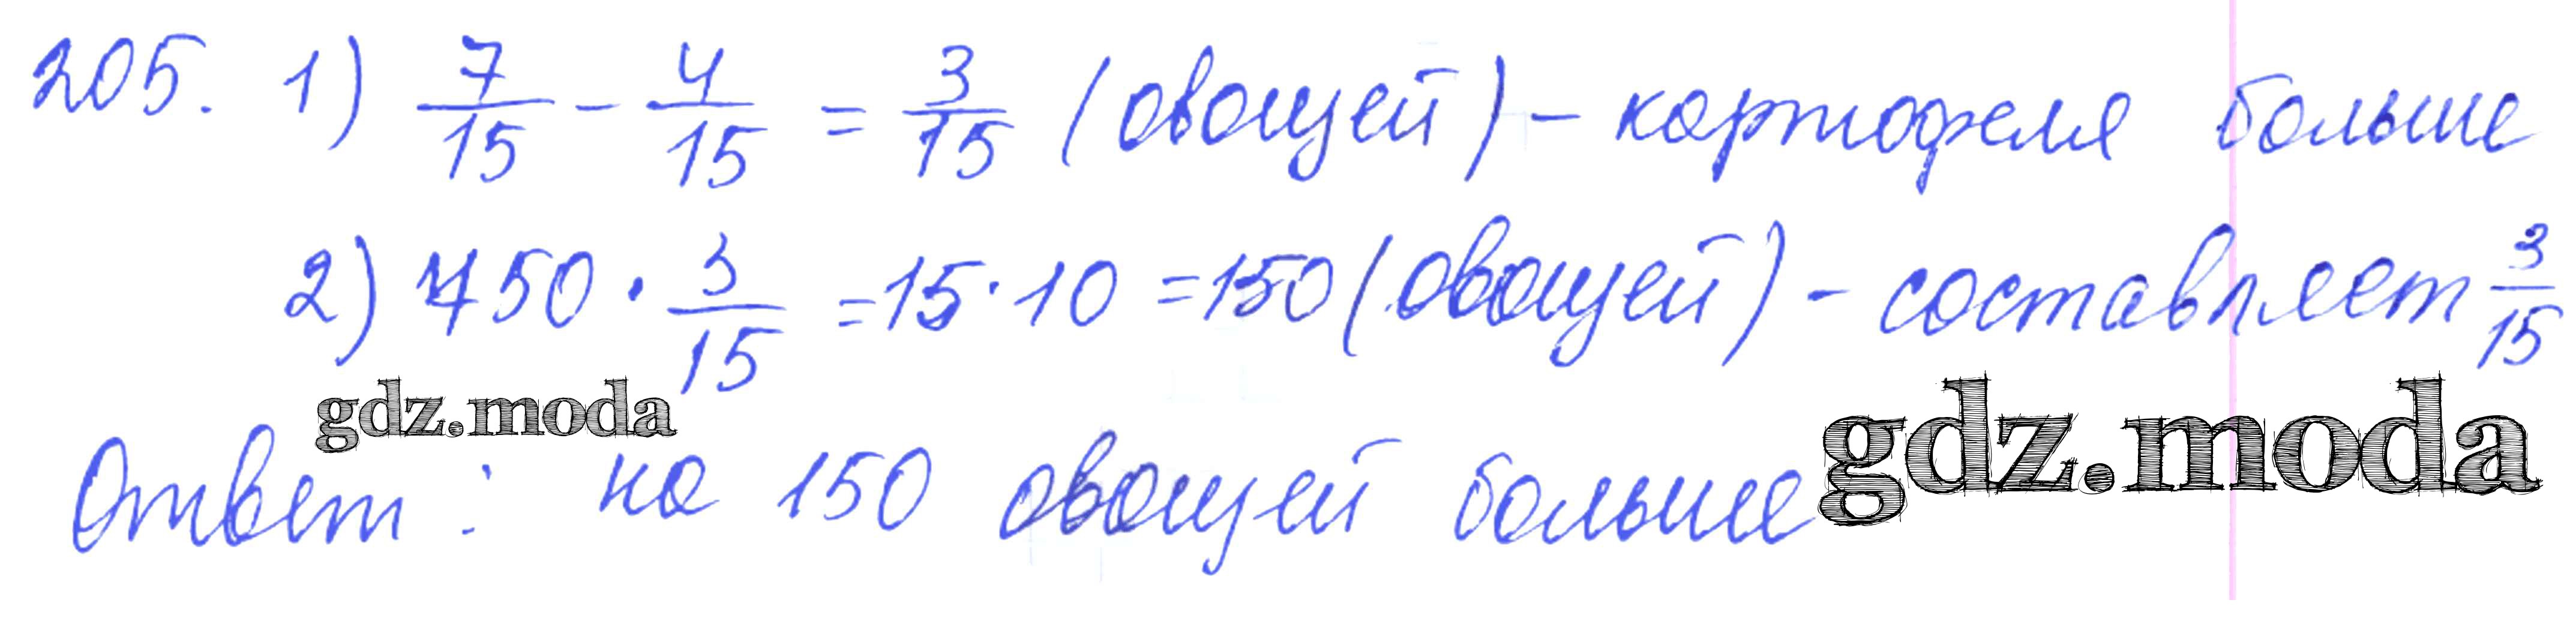 205. 1) 7/15 - 4/15 = 3/15 (овощей) - картофеля больше
2) 750 · 3/15 = 15·10 = 150 (овощей) - составляет 3/15
gdz.moda
gdz.moda
Ответ: на 150 овощей больше